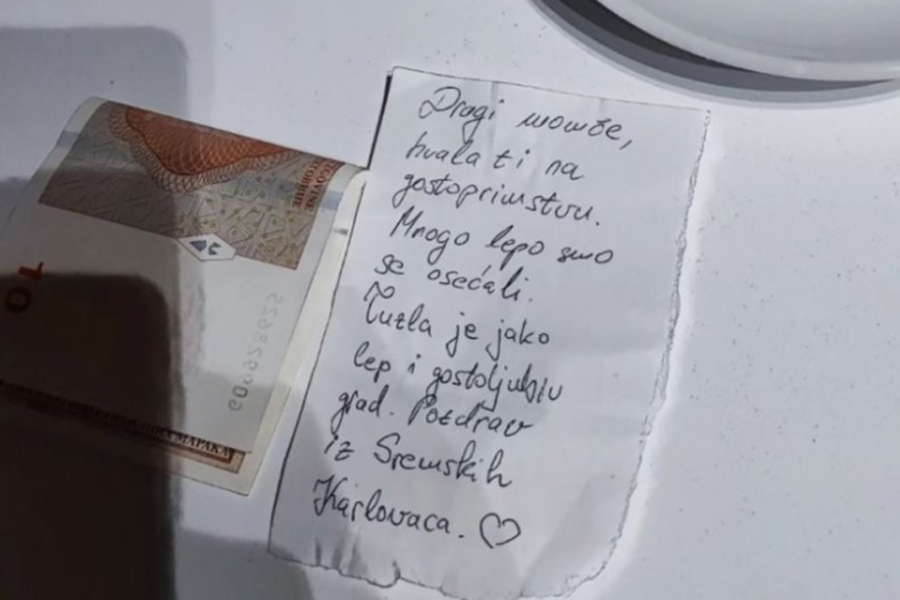 Dragi momče,
hvala ti na
gostoprimstvu.
Mnogo lepo smo
se osećali.
Tuzla je jako
lep i gostoljubiv
grad. Pozdrav
iz Sremskih
Karlovaca. ♡
10
G00928625